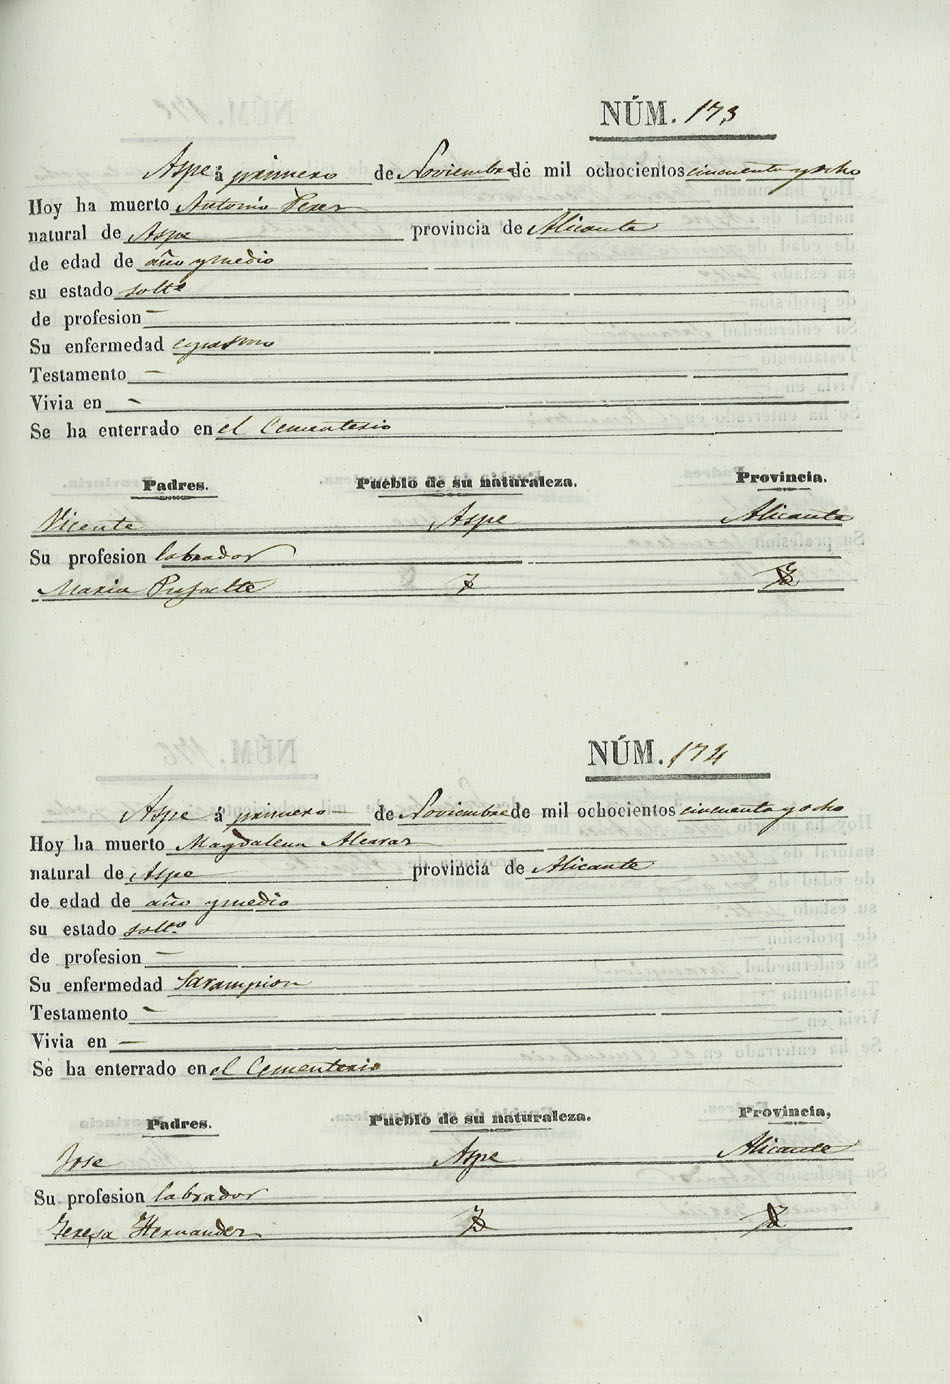 NÚM. 173
Aspe á primero de Noviembre de mil ochocientos cincuenta y ocho
Hoy ha muerto Antonio Perez
natural de Aspe provincia de Alicante
de edad de año y medio
su estado solt.º
de profesion —
Su enfermedad espasmo
Testamento —
Vivia en —
Se ha enterrado en el Cementerio
Padres. Pueblo de su naturaleza. Provincia.
Vicente Aspe Alicante
Su profesion labrador
Maria Pujalte
NÚM. 174
Aspe á primero de Noviembre de mil ochocientos cincuenta y ocho
Hoy ha muerto Magdalena Alcaraz
natural de Aspe provincia de Alicante
de edad de año y medio
su estado solt.ª
de profesion —
Su enfermedad Sarampion
Testamento —
Vivia en —
Se ha enterrado en el Cementerio
Padres. Pueblo de su naturaleza. Provincia,
Jose Aspe Alicante
Su profesion labrador
Teresa Hernandez